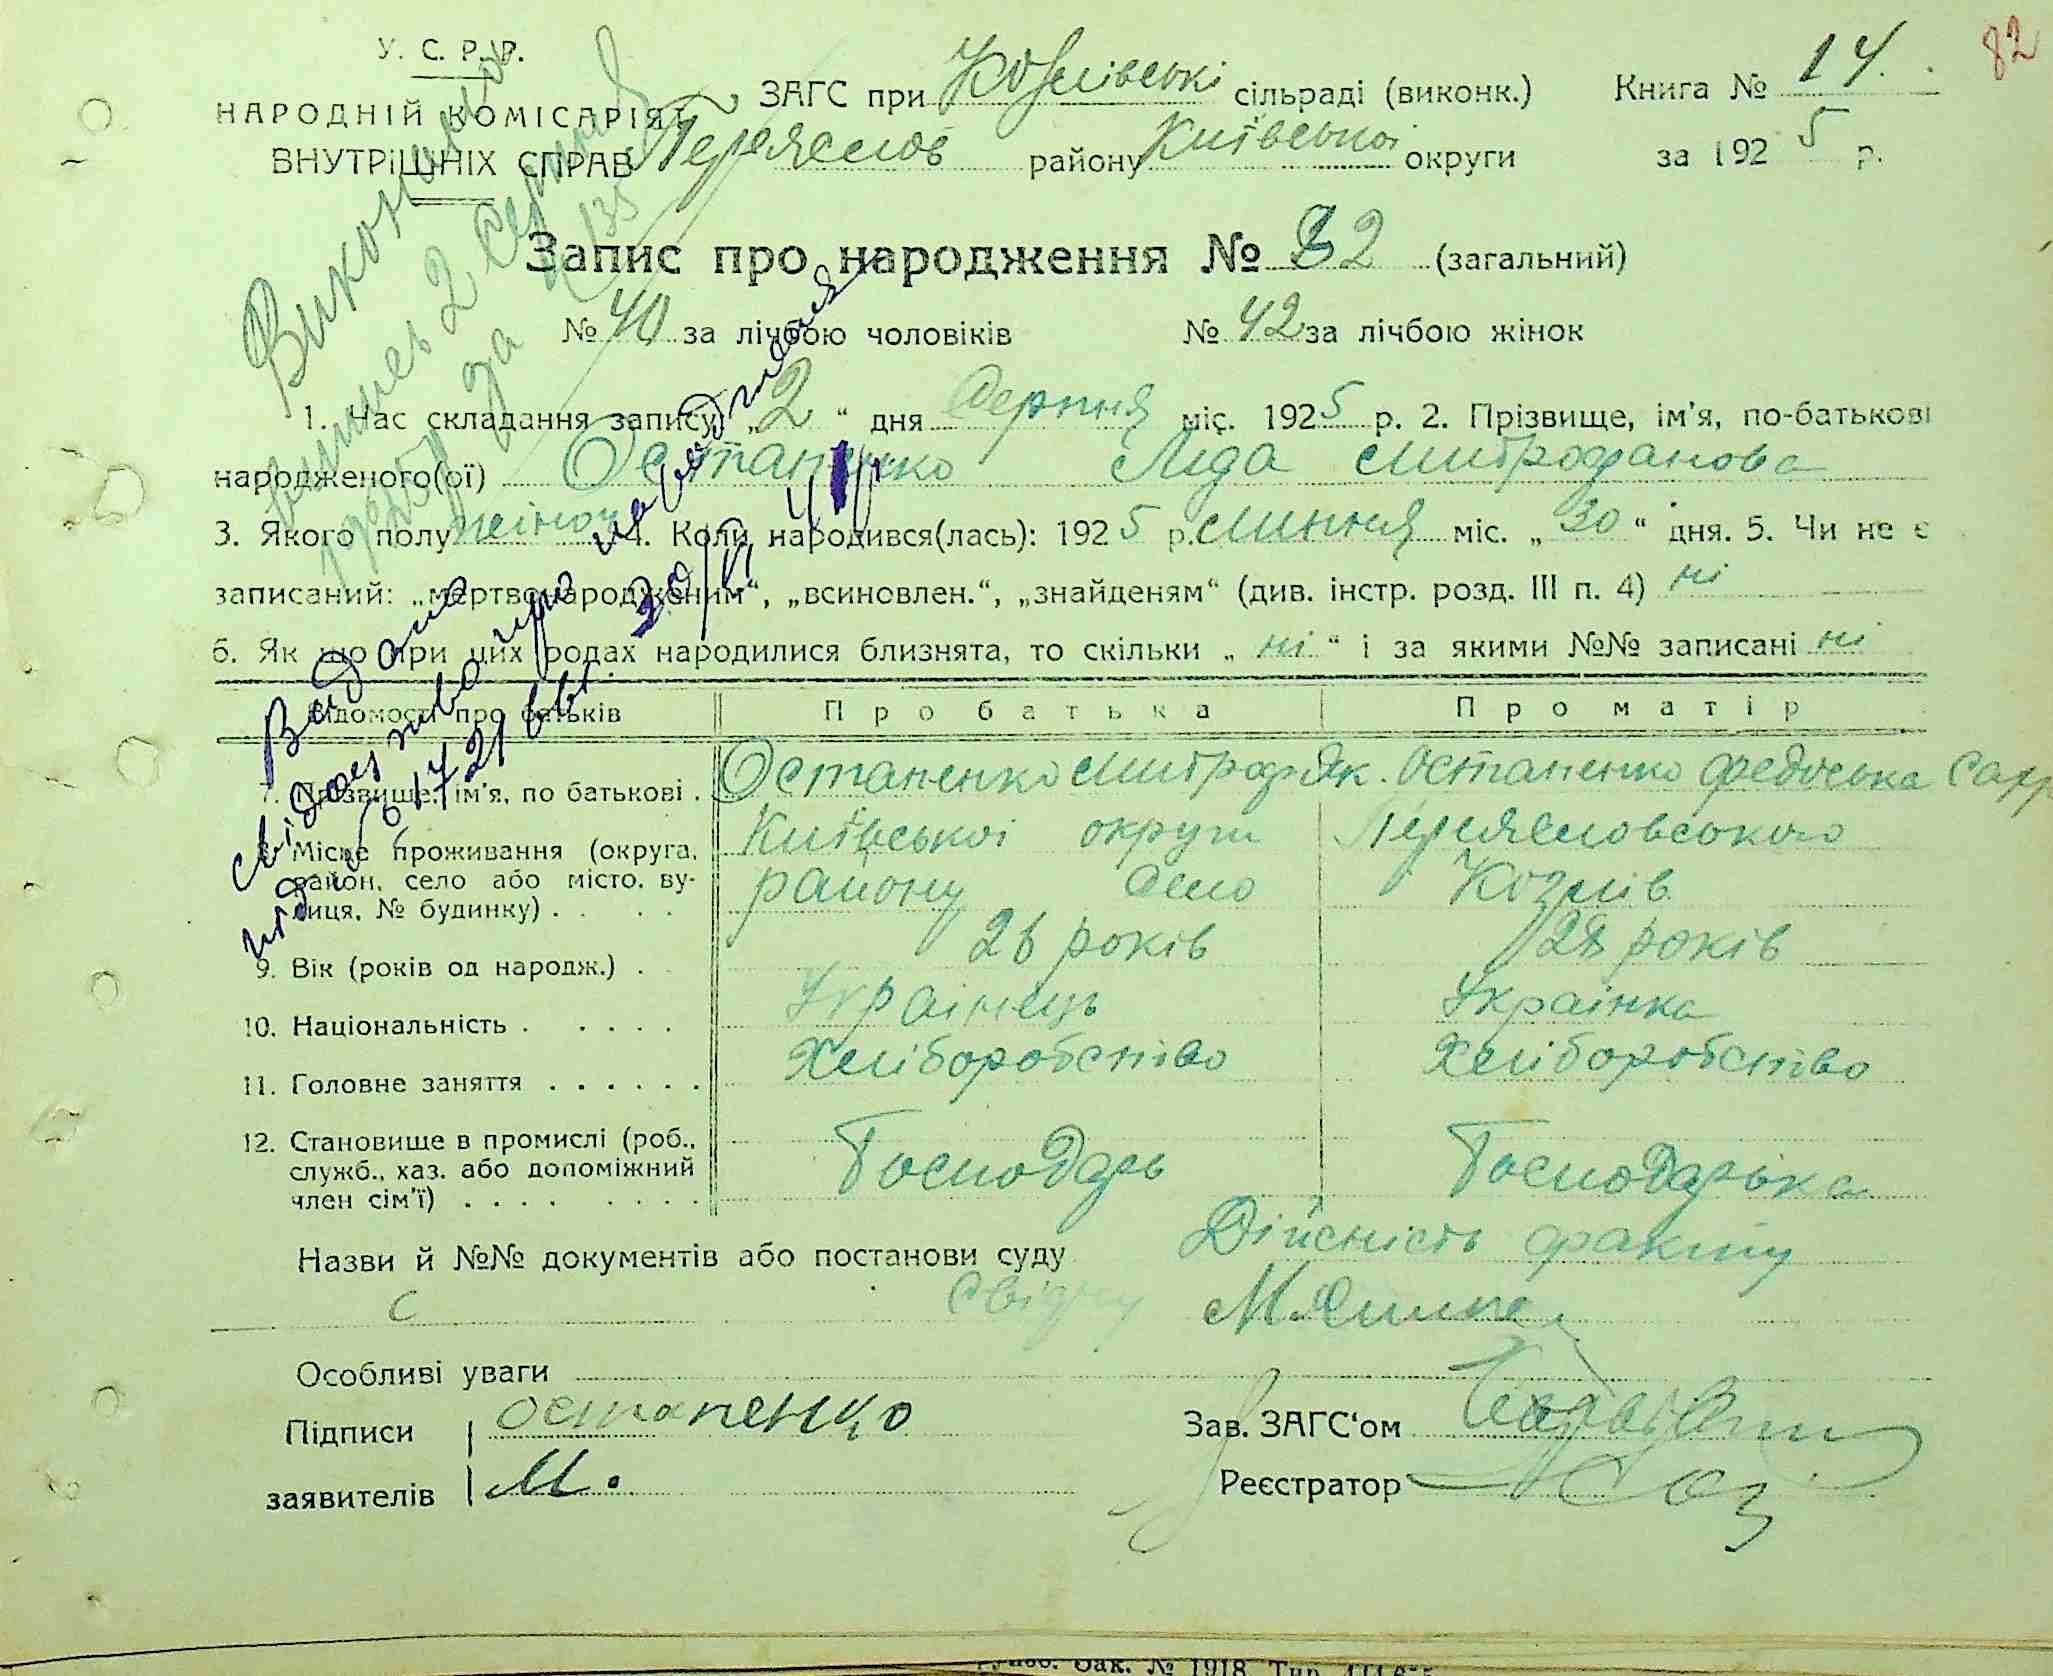 82
У. С. Р. Р.
НАРОДНІЙ КОМІСАРІЯТ
ВНУТРІШНІХ СПРАВ
ЗАГС при Козлівські сільраді (виконк.) Книга № 14.
Переяслов району Київської округи за 1925 р.
Запис про народження № 82 (загальний)
№ 40 за лічбою чоловіків № 42 за лічбою жінок
1. Час складання запису „2“ дня Серпня міс. 1925 р. 2. Прізвище, ім'я, по-батькові
народженого(ої) Остапенко Ліда Митрофанова
3. Якого полу жіноч 4. Коли народився(лась): 1925 р. Липня міс. „30“ дня. 5. Чи не є
записаний: „мертвонародженим“, „всиновлен.“, „знайденям“ (див. інстр. розд. III п. 4) ні
6. Як що при цих родах народилися близнята, то скільки „ні“ і за якими №№ записані ні
Відомості про батьків Про батька Про матір
7. Прізвище, ім'я, по батькові . Остапенко Митроф Як. Остапенко Федоська Сахр
8. Місце проживання (округа, район, село або місто, вулиця, № будинку) . . . . Київської округи Переясловського
району село Козлів
9. Вік (років од народж.) . 26 років 28 років
10. Національність . . . . . Українець Українка
11. Головне заняття . . . . . . Хліборобство Хліборобство
12. Становище в промислі (роб., служб., хаз. або допоміжний член сім'ї) . . . . . . . . Господарь Господарька
Назви й №№ документів або постанови суду Дійсність факту
С свідчу
Особливі уваги
Підписи Остапенко
заявителів М.
Зав. ЗАГС'ом
Реєстратор
Видано
свідоцтво про народження
під № 61721